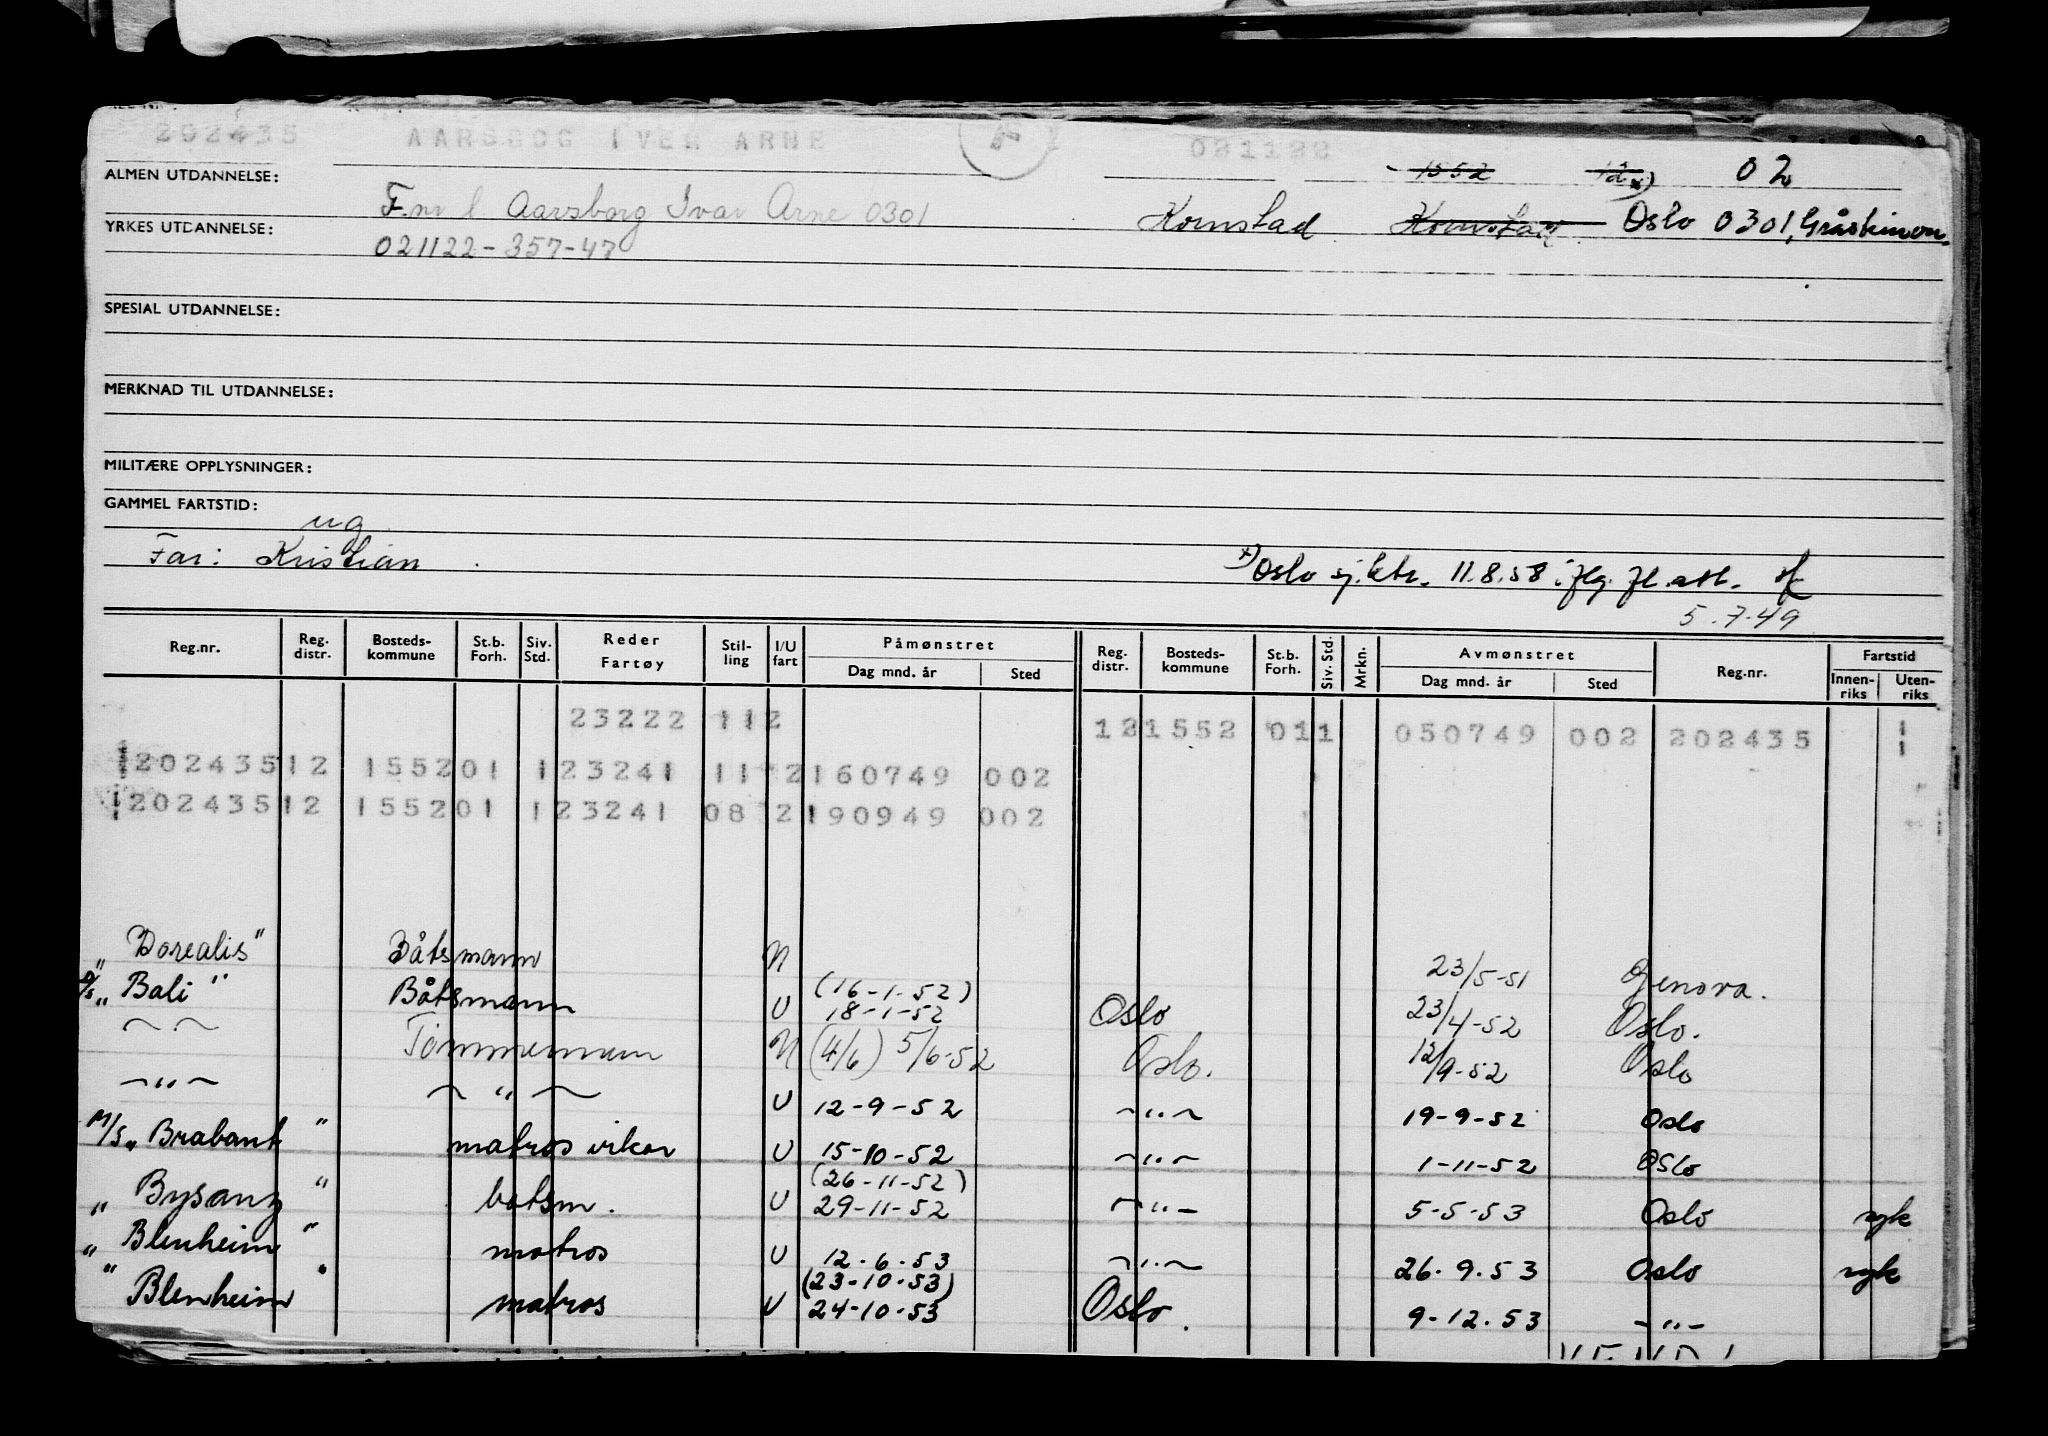 202435 AARSBOG IVER ARNE 021122
ALMEN UTDANNELSE: 1552 12 x) 02
F.nr l Aarsborg Ivar Arne 0301 Kornstad Kornstad Oslo 0301, Gråsteinvn.
YRKES UTDANNELSE:
021122-357-47
SPESIAL UTDANNELSE:
MERKNAD TIL UTDANNELSE:
MILITÆRE OPPLYSNINGER:
GAMMEL FARTSTID:
ug
Far: Kristian x) Oslo sj.ktr. 11.8.58 iflg. fl.
5.7.49
Reg.nr. Reg. distr. Bosteds-kommune St.b. Forh. Siv. Std. Reder Fartøy Stil-ling I/U fart Påmønstret Dag mnd. år Sted Reg. distr. Bosteds-kommune St.b. Forh. Siv. Std. Mrkn. Avmønstret Dag mnd. år Sted Reg.nr. Fartstid Innen-riks Uten-riks
23222 112 121552 011 050749 002 202435
120243512 155201 123241 11 2160749 002
120243512 155201 123241 08 2190949 002
„Borealis" Båtsmann N 23/5-51 Genova.
D/S „Bali" Båtsmann U (16-1-52) 18-1-52 Oslo 23/4-52 Oslo.
~ " ~ Tømmermann N (4/6) 5/6-52 Oslo. 12/9-52 Oslo
~ " ~ ~ " ~ U 12-9-52 ~ " ~ 19-9-52 Oslo
M/S „Brabant" matros vikar U 15-10-52 ~ " ~ 1-11-52 Oslo
„Bysanz" båtsm. U (26-11-52) 29-11-52 ~ " ~ 5-5-53 Oslo syk
„Blenheim" matros U 12.6.53 ~ " ~ 26.9.53 Oslo syk
"Blenheim" matros U (23-10-53) 24-10-53 Oslo. 9-12.53 ~ " ~